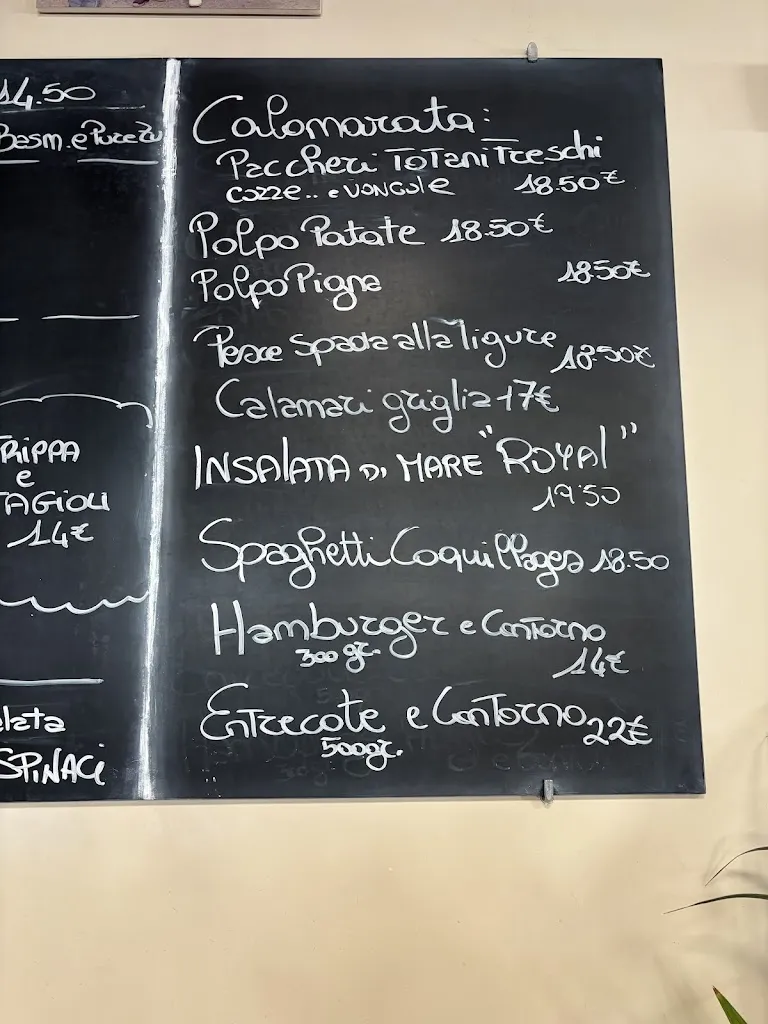 14.50
Basm. e Purezu
RIPPA
e
FAGIOLI
14€
elata
SPINACI
Calomarata:
Paccheri Totani Freschi
cozze.. e vongole 18.50€
Polpo Patate 18.50€
Polpo Pigna 18.50€
Pesce spada alla ligure 18.50€
Calamari griglia 17€
INSALATA DI MARE "ROYAL"
19.50
Spaghetti Coquillages 18.50
Hamburger e Contorno
300 gr. 14€
Entrecote e Contorno 22€
500gr.